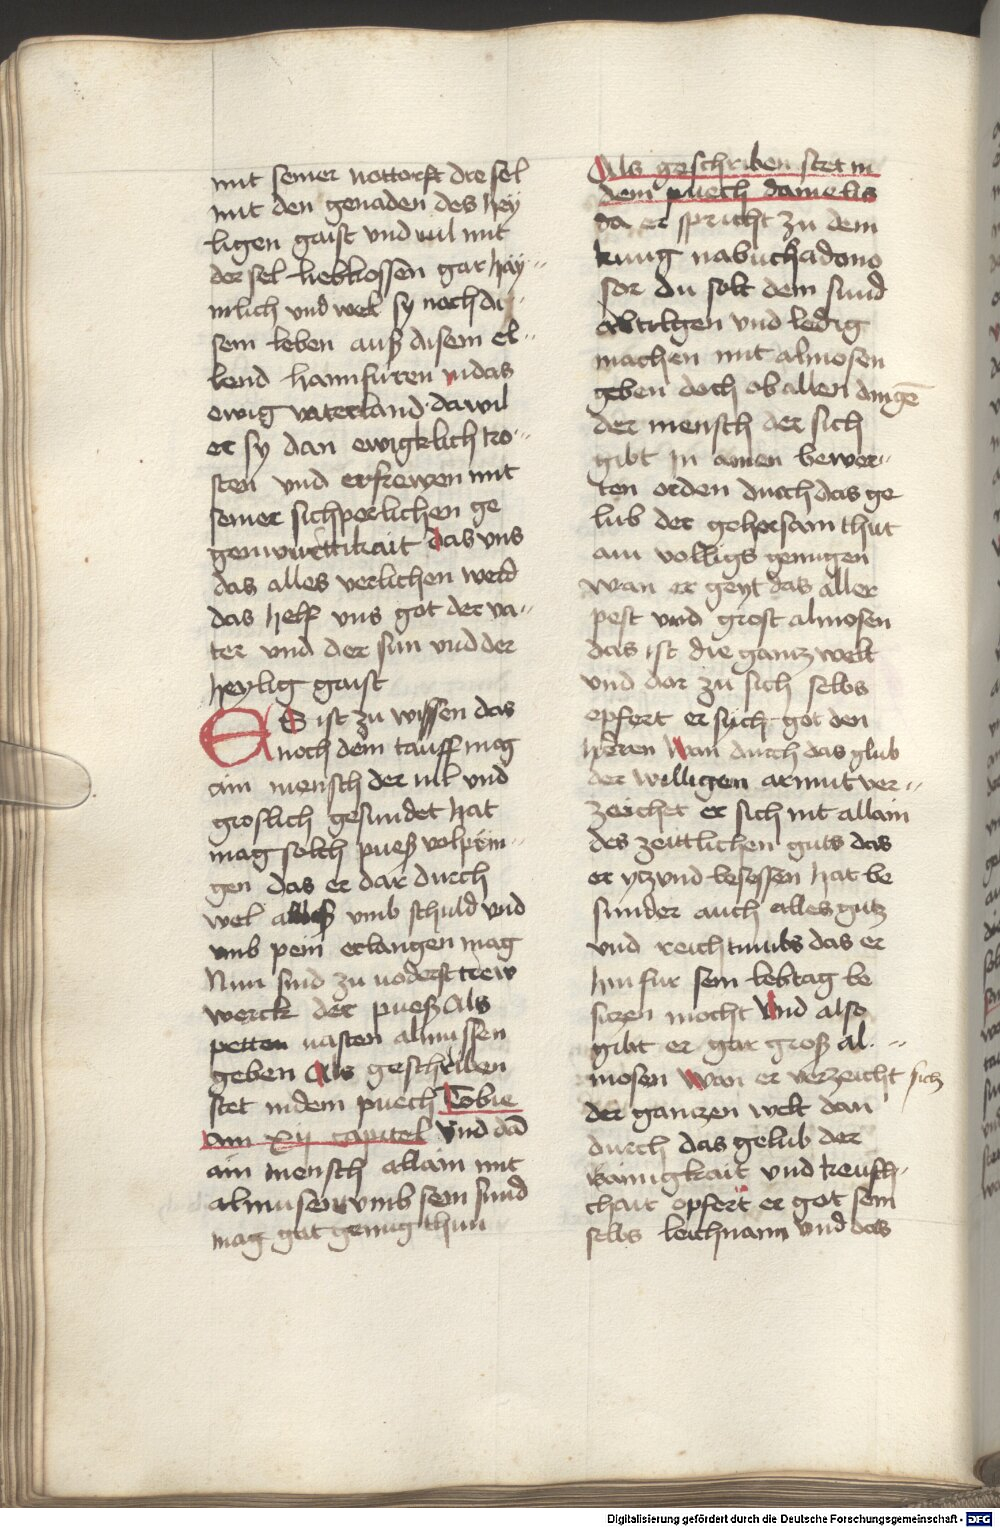 mit seiner nottorft die sel
mit den genaden des hey
ligen gaist vnd wil mit
der sel liebkossen gar hay-
mlich vnd wel sy noch di
sem leben auß disem el-
lend haimfuren in das
ewig vaterland da wil
er sy dan ewigklich tro-
sten vnd erfrewen mit
seiner sichperlichen ge
genwurttikait das vns
das alles verlichen werd
das helf vns got der va-
ter vnd der sun vnd der
heylig gaist
ES ist zu wissen das
noch dem tauff mag
ain mensch der vil vnd
groslich gesundet hat
mag solch pueß volprin-
gen das er dar durch
wel ablaß vmb schuld vnd
vmb pein erlangen mag
Nun sind zu voderst trew
werck der pueß Als
petten vasten almussen
geben Als geschriben
stet in dem puech Tobie
am xij capitel Vnd da
ain mensch allain mit
almusen vmb sein sund
mag gat genug thun
Als geschriben stet in
dem puech danielis
da er spricht zu dem
kunig nabuchadono
sor du solt dein sund
abtilgen vnd ledig
machen mit almosen
geben doch ob allen dingen
der mensch der sich
gibt in ainen bewer-
ten orden durch das ge
lub der gehorsam thut
ain volligs genugen
wan er geyt das aller
pest vnd grost almosen
das ist die gantz welt
vnd dar zu sich selbs
opfert er sych got den
heren Wan durch das glub
der willigen armut ver-
zeichet er sich nit allain
des zeittlichen guts das
er ytzund besessen hat be
sunder auch alles gutz
vnd reichtumbs das er
hin fur sein lebtag be
siczen mocht Vnd also
gibt er gar groß al-
mosen Wan er verzeicht sich
der gantzen welt dan
durch das gelub der
rainigkait vnd keusch-
chait opfert er got sein
selbs leichnam Vnd das
Digitalisierung gefördert durch die Deutsche Forschungsgemeinschaft - DFG